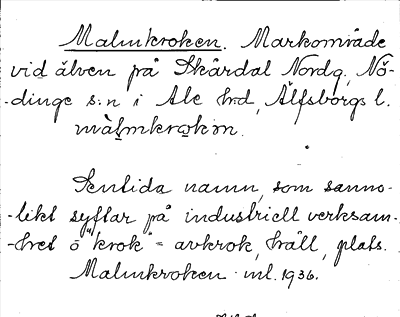 Malmkroken. Markområde
vid älven på Skårdal Nordg, Nö-
-dinge s:n i Ale h:d, Älfsborgs l.
màl̰mkrọkən.
Sentida namn, som sanno-
-likt syftar på industriell verksam-
-het o "krok" = avkrok, håll, plats.
Malmkroken inl. 1936.